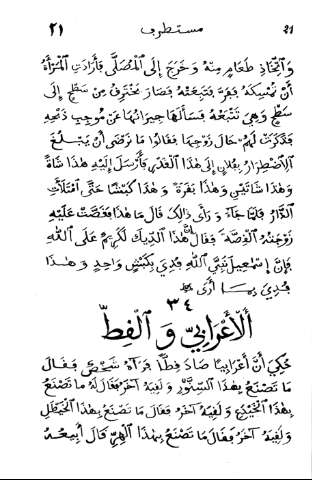 ٢١ مستطرف 21
وَاتِّخَاذِ طَعَامٍ مِنْهُ وَ خَرَجَ إِلَى الْمُصَلَّى فَأَرَادَتِ الْمَرْأَةُ
أَنْ تُمْسِكَهُ فَفَرَّ فَتَبِعَتْهُ فَصَارَ يَخْتَرِقُ مِنْ سَطْحٍ إِلَى
سَطْحٍ وَهِيَ تَتْبَعُهُ فَسَأَلَهَا جِيرَانُهَا عَنْ مُوجِبِ ذَبْحِهِ
فَذَكَرَتْ لَهُمْ حَالَ زَوْجِهَا فَقَالُوا مَا نَرْضَى أَنْ يَبْلُغَ
الْاِضْطِرَارُ بِفُلَانٍ إِلَى هٰذَا الْقَدْرِ فَأَرْسَلَ إِلَيْهِ هٰذَا شَاةً
وَهٰذَا شَاتَيْنِ وَهٰذَا بَقَرَةً وَ هٰذَا كَبْشًا حَتَّى امْتَلَأَتِ
الدَّارُ فَلَمَّا جَاءَ وَ رَأَى ذَالِكَ قَالَ مَا هٰذَا فَقَصَّتْ عَلَيْهِ
زَوْجَتُهُ الْقِصَّةَ فَقَالَ إِنَّ هٰذَا الدِّيكَ لَكَرِيمٌ عَلَى اللّٰهِ
فَإِنَّ إِسْمٰعِيلَ نَبِيَّ اللّٰهِ فُدِيَ بِكَبْشٍ وَاحِدٍ وَ هٰذَا
فُدِيَ بِمَا أَرَى
٣٤
اَلْأَعْرَابِيُّ وَ الْقِطُّ
حُكِيَ أَنَّ أَعْرَابِيًّا صَادَ قِطًّا فَرَآهُ شَخْصٌ فَقَالَ
مَا تَصْنَعُ بِهٰذَا السِّنَّوْرِ وَ لَقِيَهُ آخَرُ فَقَالَ لَهُ مَا تَصْنَعُ
بِهٰذَا الْخَيْدَعِ وَ لَقِيَهُ آخَرُ فَقَالَ مَا تَصْنَعُ بِهٰذَا الْخَيْطَلِ
وَ لَقِيَهُ آخَرُ فَقَالَ مَا تَصْنَعُ بِهٰذَا الْهِرِّ قَالَ أَبِيعُهُ